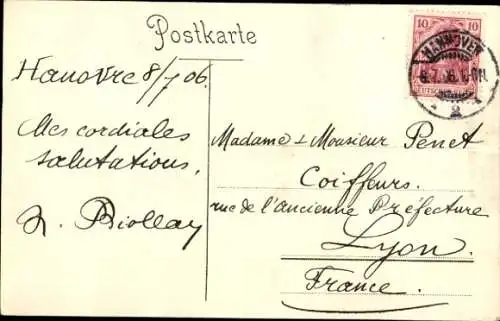 Postkarte
10 10
HANNOVER
2
Hanovre 8/7 06.
Mes cordiales
salutations.
Biollay
Madame & Monsieur Penet
Coiffeurs.
rue de l'Ancienne Préfecture
Lyon.
France.